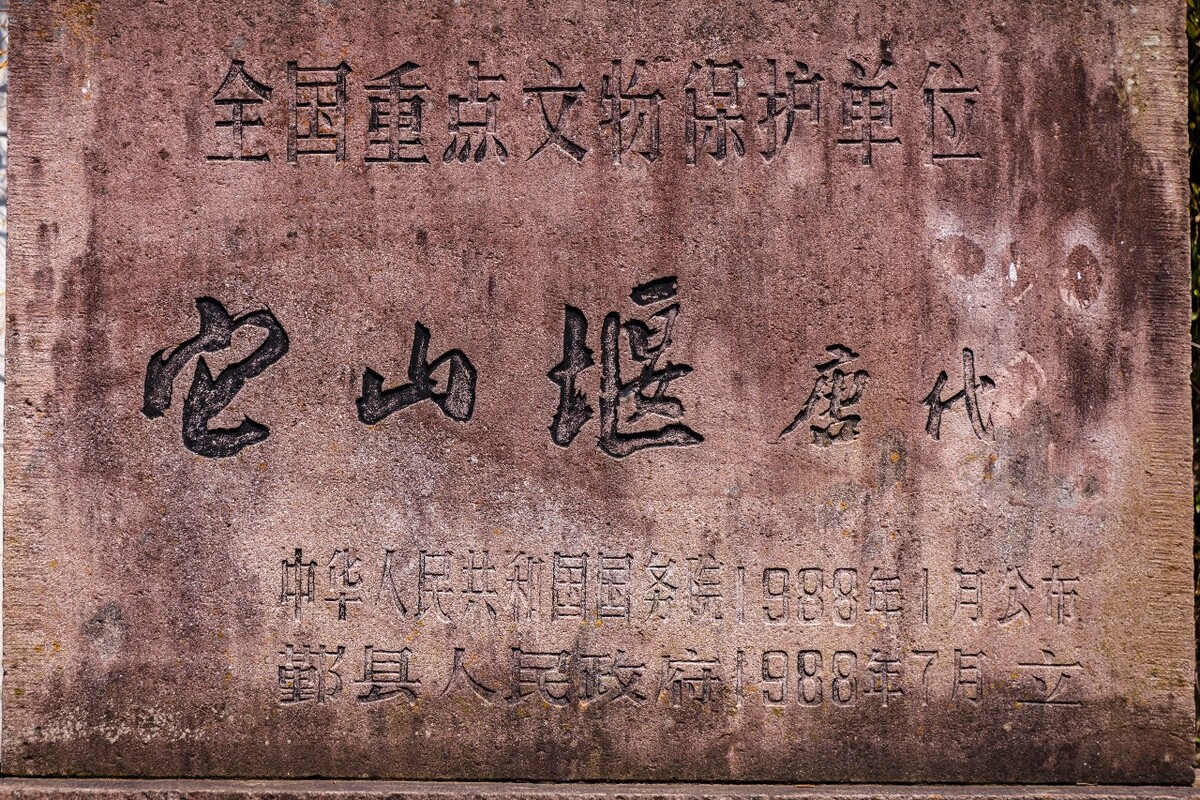 全国重点文物保护单位
它山堰 唐代
中华人民共和国国务院1988年1月公布
鄞县人民政府1988年7月 立